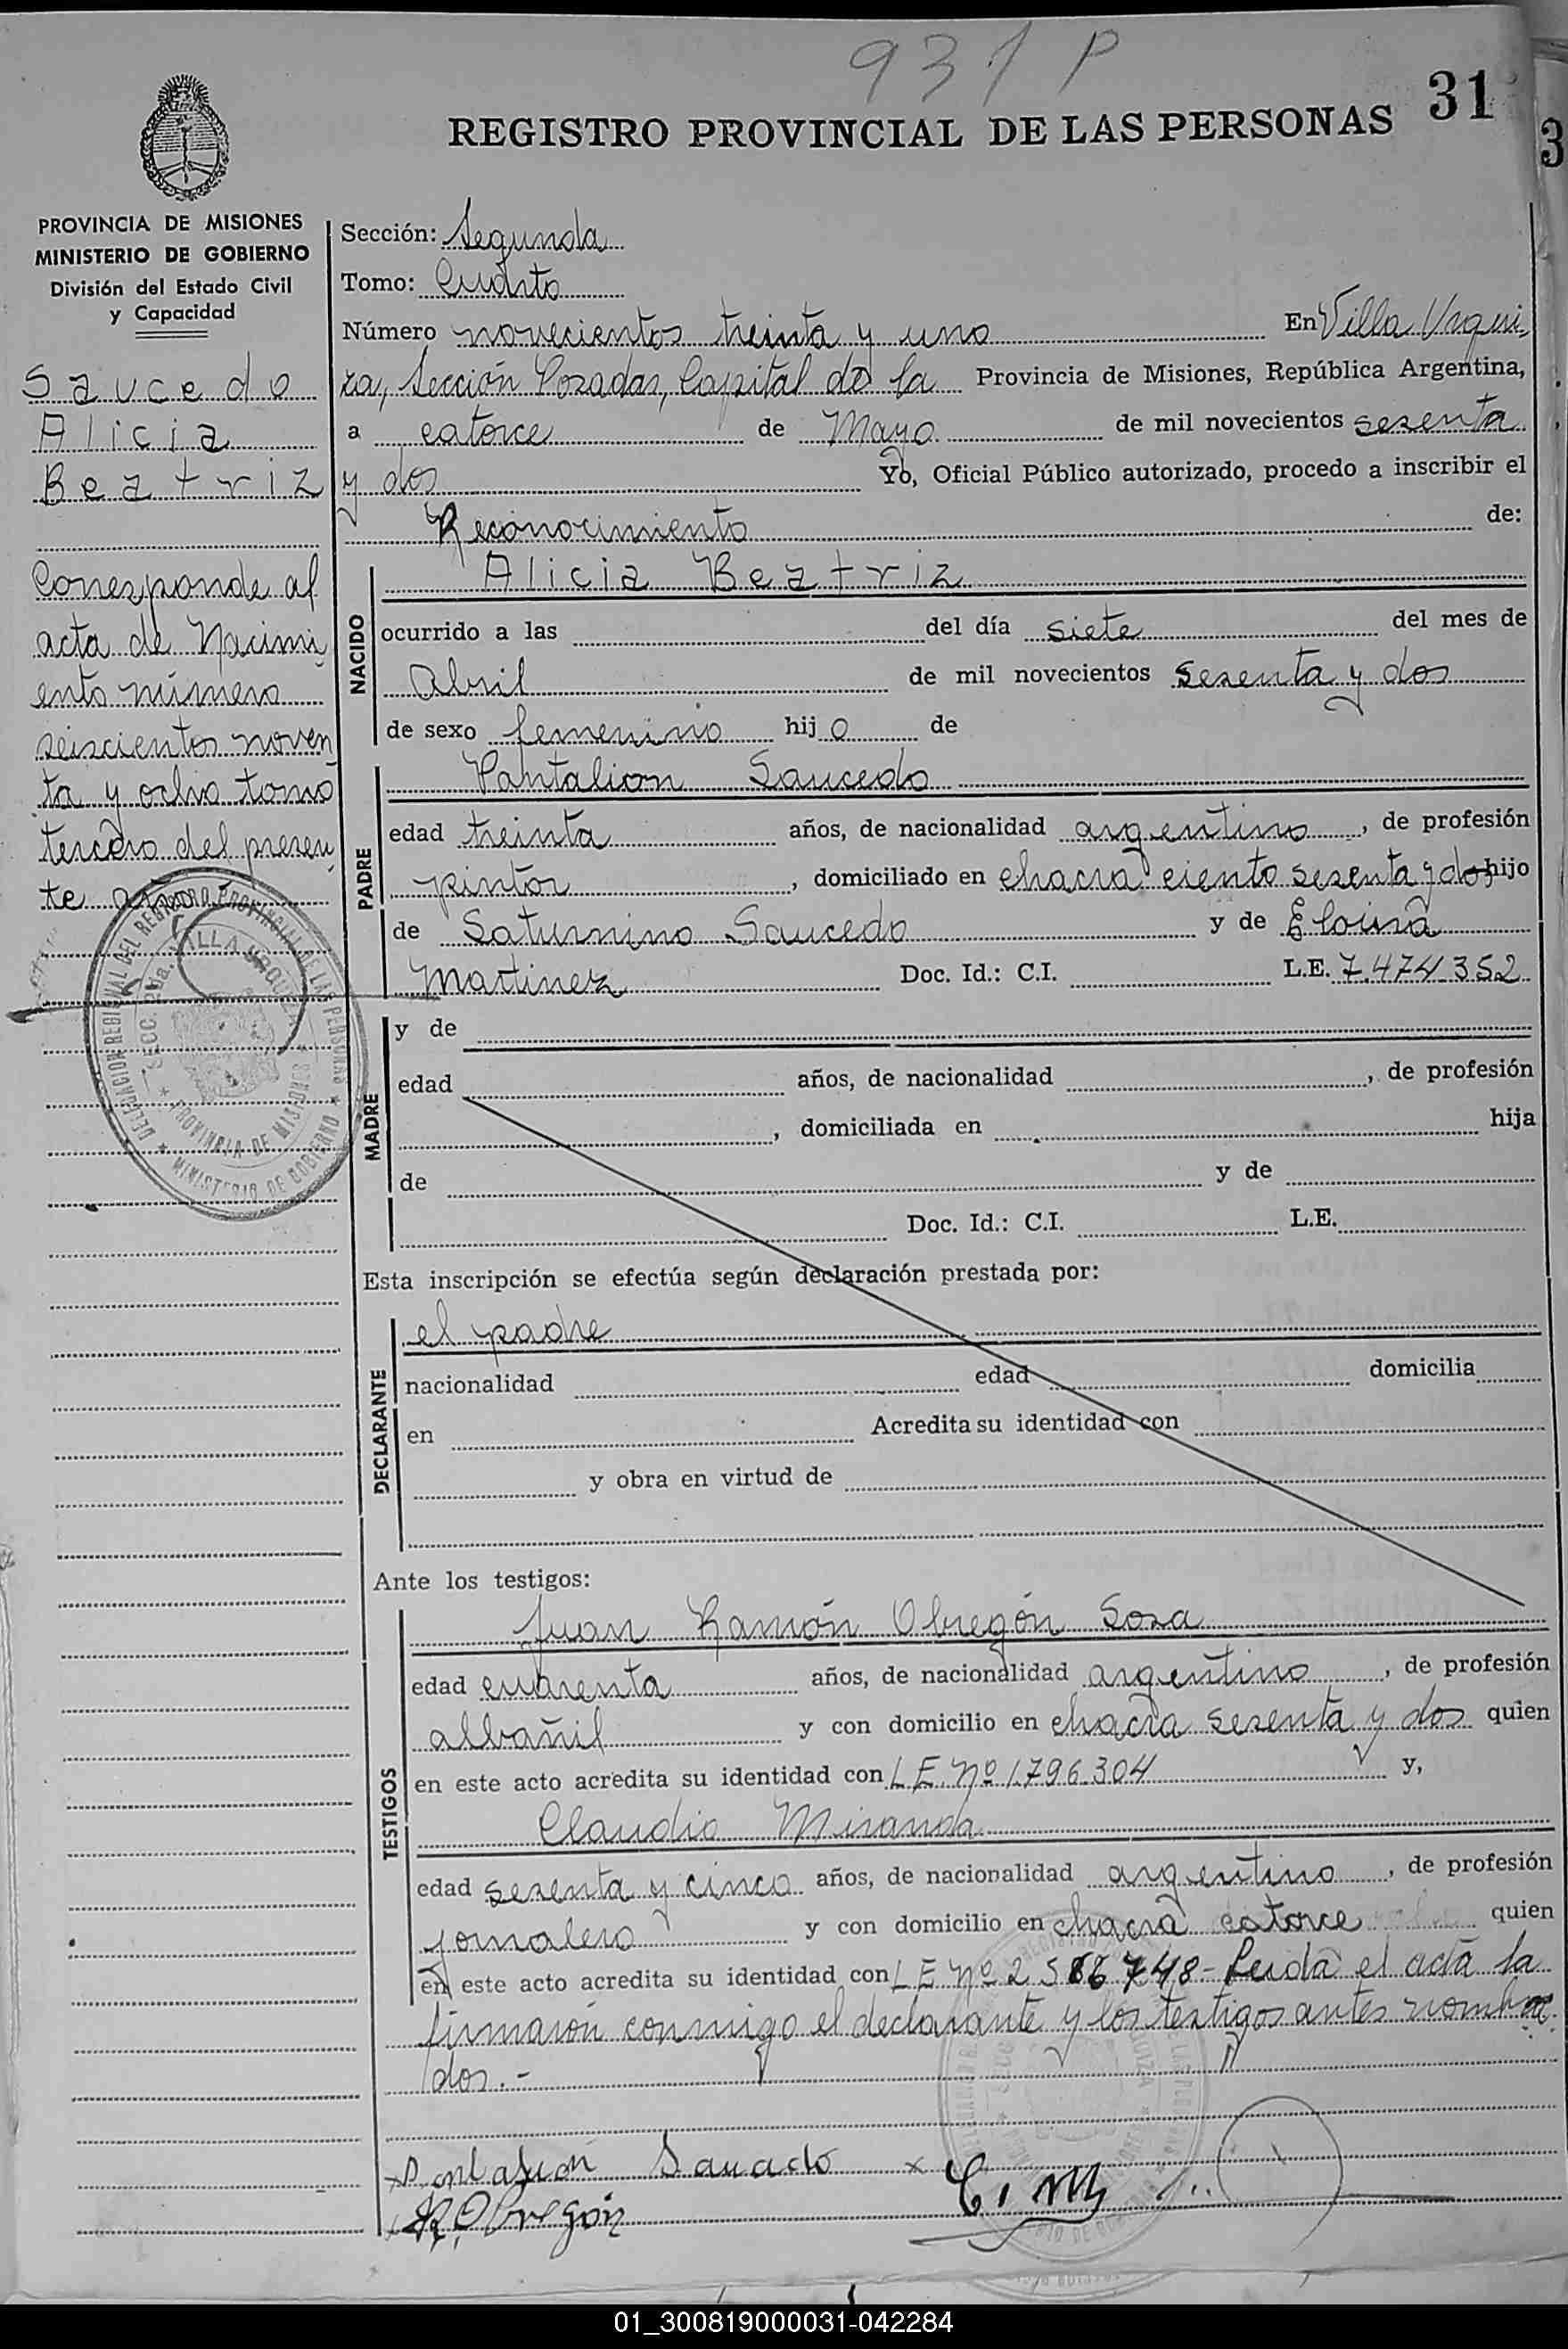 931 P
31
3
REGISTRO PROVINCIAL DE LAS PERSONAS
PROVINCIA DE MISIONES
MINISTERIO DE GOBIERNO
División del Estado Civil
y Capacidad
Saucedo
Alicia
Beatriz
Corresponde al
acta de Nacimi
ento número
seiscientos noven
ta y ocho tomo
tercero del presen
te año
DELEGACION REGIONAL DEL REGISTRO PROVINCIAL DE LAS PERSONAS
SECC. 2da. VILLA URQUIZA
PROVINCIA DE MISIONES
MINISTERIO DE GOBIERNO
Sección: Segunda
Tomo: Cuarto
Número novecientos treinta y uno En Villa Urqui
za, Sección Posadas, Capital de la Provincia de Misiones, República Argentina,
a catorce de Mayo de mil novecientos sesenta
y dos Yo, Oficial Público autorizado, procedo a inscribir el
Reconocimiento de:
NACIDO
Alicia Beatriz
ocurrido a las del día siete del mes de
Abril de mil novecientos sesenta y dos
de sexo femenino hij a de
PADRE
Pantalion Saucedo
edad treinta años, de nacionalidad argentino, de profesión
pintor, domiciliado en chacra ciento sesenta y dos hijo
de Saturnino Saucedo y de Eloisa
Martinez Doc. Id.: C.I. L.E. 7.474.352
MADRE
y de
edad años, de nacionalidad , de profesión
, domiciliada en hija
de y de
Doc. Id.: C.I. L.E.
Esta inscripción se efectúa según declaración prestada por:
DECLARANTE
el padre
nacionalidad edad domicilia
en Acredita su identidad con
y obra en virtud de
Ante los testigos:
TESTIGOS
Juan Ramón Obregón Sosa
edad cuarenta años, de nacionalidad argentino, de profesión
albañil y con domicilio en chacra sesenta y dos quien
en este acto acredita su identidad con L E Nº 1.796.304 y,
Claudio Miranda
edad sesenta y cinco años, de nacionalidad argentino, de profesión
jornalero y con domicilio en chacra catorce quien
en este acto acredita su identidad con L E Nº 2 586 748 - Leida el acta la
firmaron conmigo el declarante y los testigos antes nombra
dos.-
x Pantalion Saucedo x C. M
R. Obregón
01_300819000031-042284